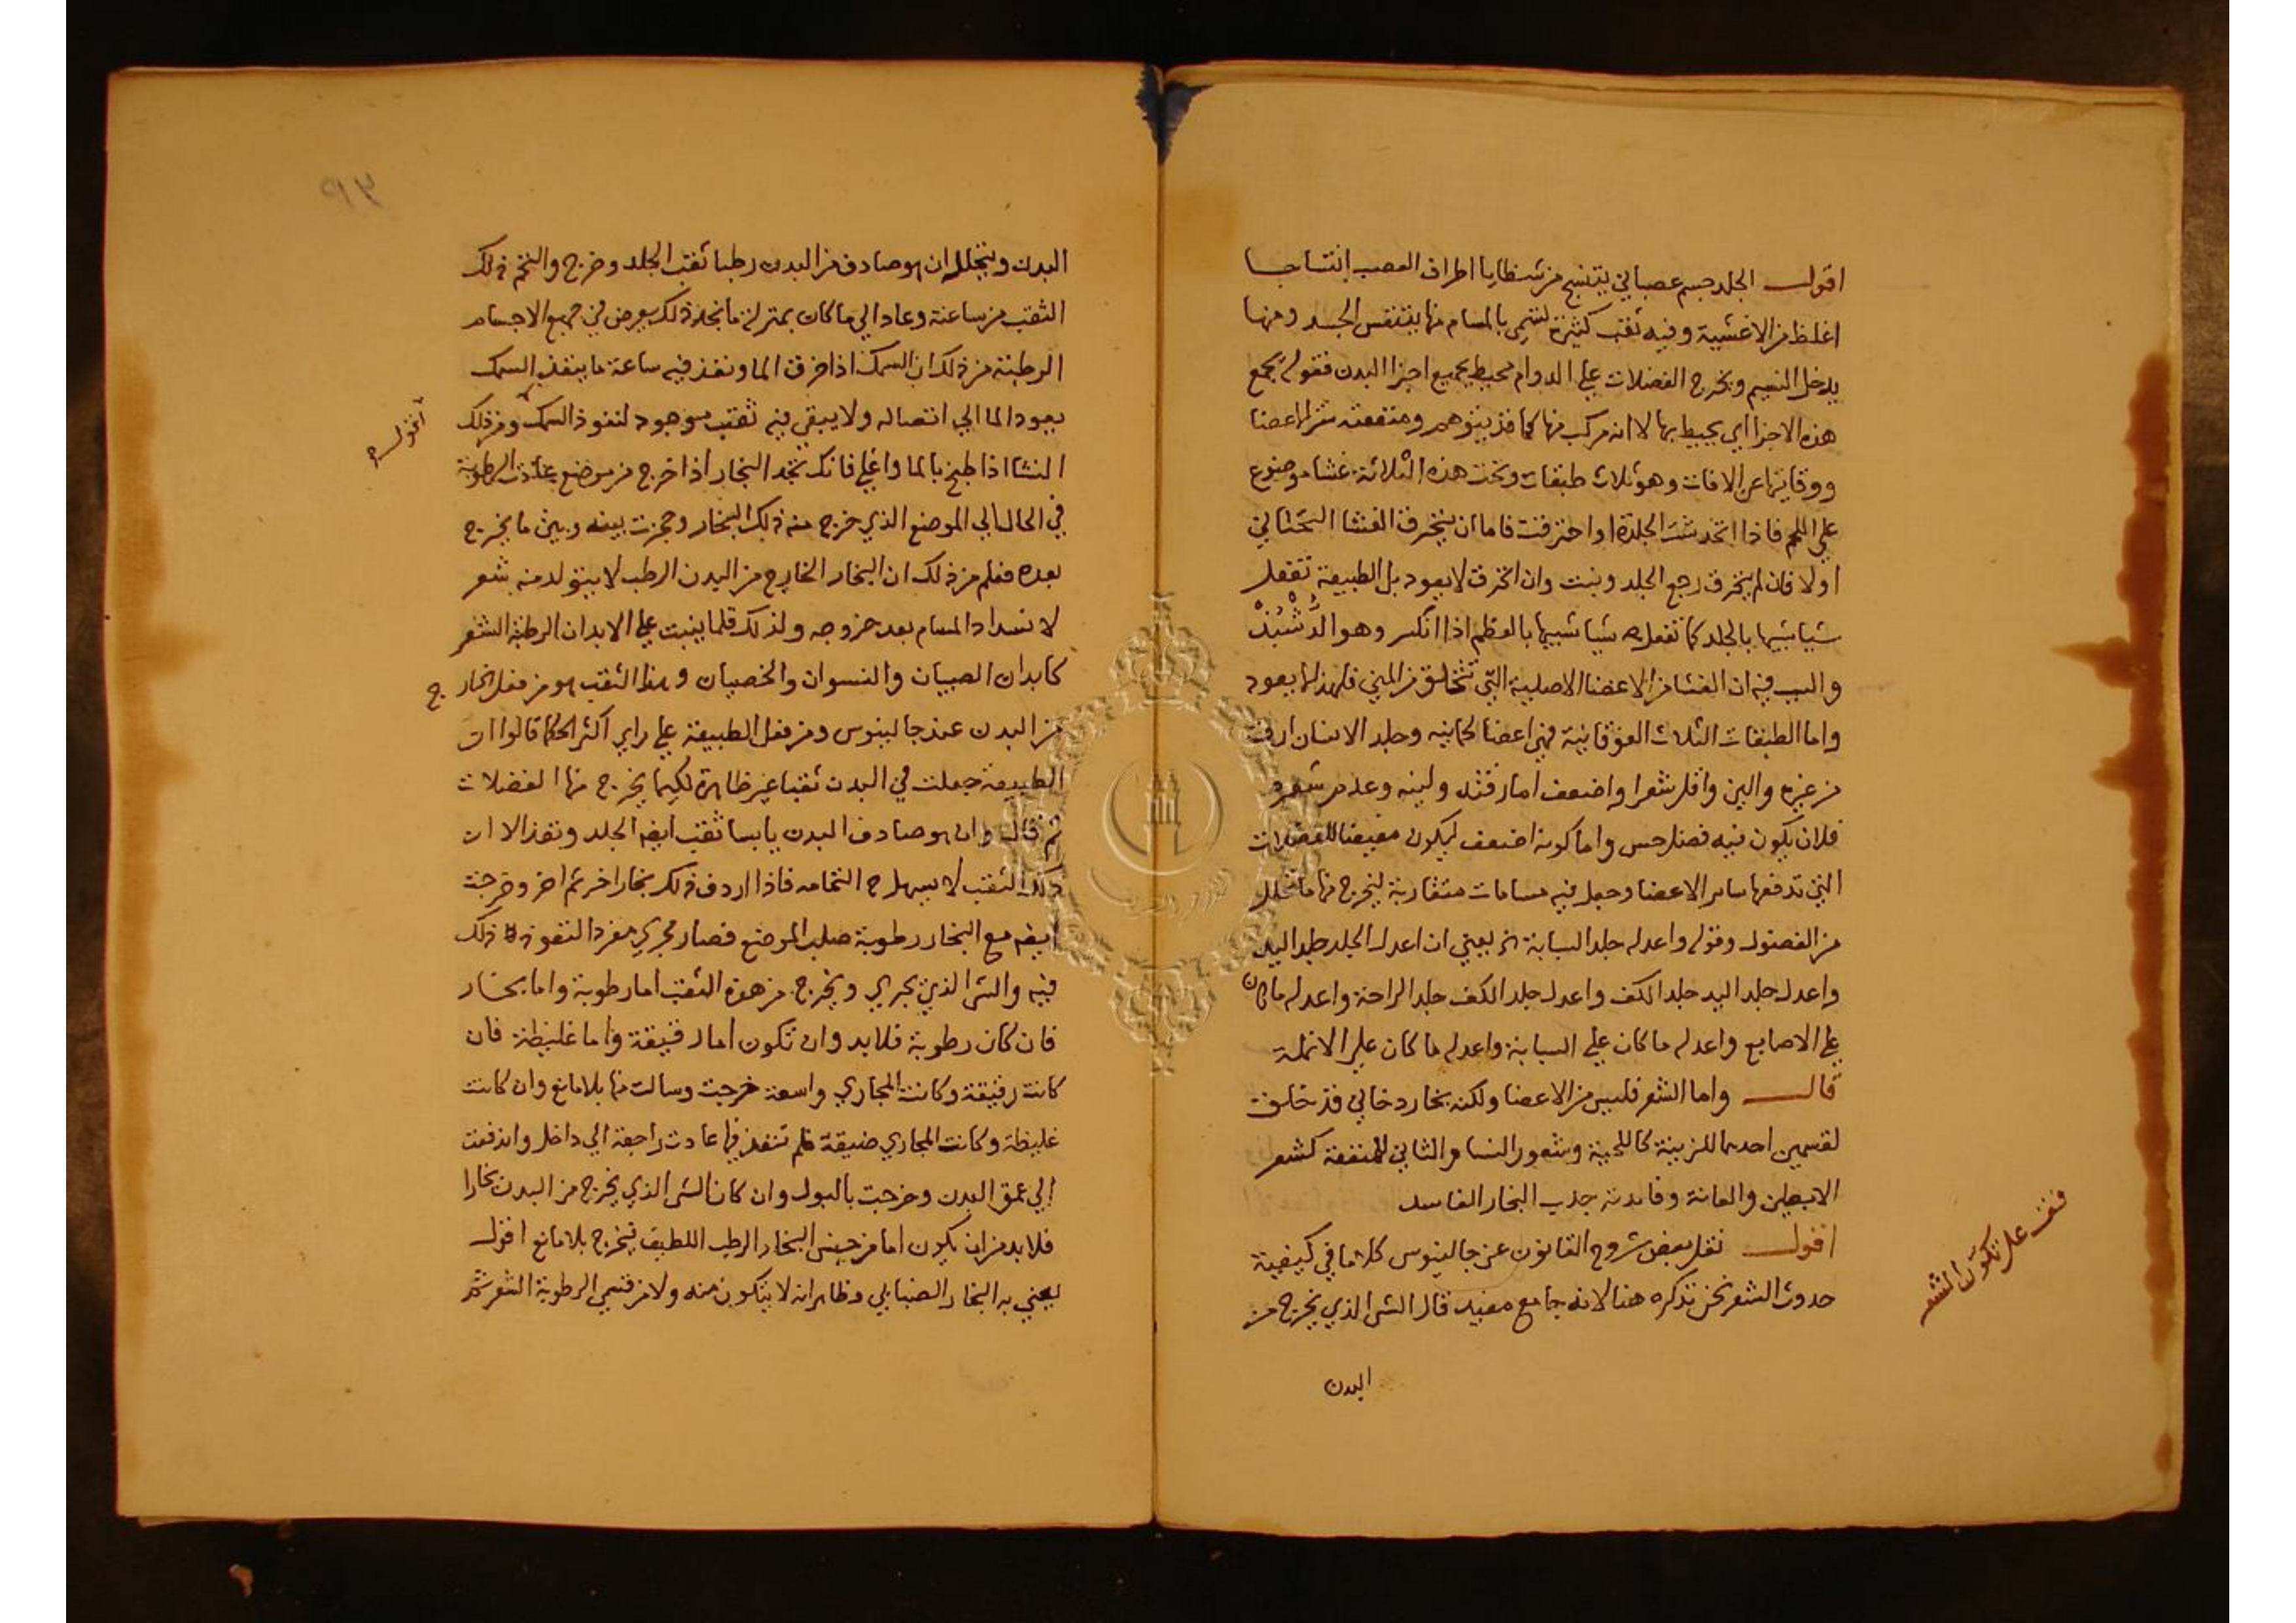 اقول الجلد جسم عصباني ينتسج من شظايا اطراف العصب انتساجا
اغلظ من الاغشية وفيه ثقب كثيرة تسمي بالمسام منها يتنفس الجسد ومنها
يدخل النسيم ويخرج الفضلات علي الدوام محيط بجميع اجزا البدن فقوله يجمع
هذه الاجزا اي يحيط بها لا انه مركب منها كما قد يتوهم ومنفعته ستر الاعضا
ووقايتها عن الافات وهو ثلاث طبقات وتحت هذه الثلاثة غشا موضوع
علي اللحم فاذا انخدشت الجلدة او احترقت فاما ان ينخرق الغشا التحتاني
اولا فان لم ينخرق رجع الجلد ونبت وان انخرق لا يعود بل الطبيعة تفعل
شيا شبيها بالجلد كما تفعل شيا شبيها بالعظم اذا انكسر وهو الدشبذ
والسبب فيه ان الغشا من الاعضا الاصلية التي تتخلق من المني فلهذا لا يعود
واما الطبقات الثلاث الفوقانية فهي اعضا لحمانيه وجلد الانسان ارق
من غيره والين واقل شعرا واضعف اما رقته ولينه وعدم شعره
فلان يكون فيه فضل حس واما كونه اضعف ليكون مفيضا للفضلات
التي تدفعها ساير الاعضا وجعل فيه مسامات متقاربة ليخرج منها ما تحلل
من الفضول وقوله واعدله جلد السبابة الخ يعني ان اعدل الجلد جلد اليد
واعدل جلد اليد جلد الكف واعدل جلد الكف جلد الراحة واعدله ما كان
علي الاصابع واعدله ما كان علي السبابة واعدله ما كان علي الانملة
قال واما الشعر فليس من الاعضا ولكنه بخار دخاني قد خلق
لقسمين احدهما للزينة كاللحية وشعور النسا والثاني للمنفعة كشعر
الابطين والعانة وفايدته جذب البخار الفاسد
اقول نقل بعض شروح القانون عن جالينوس كلاما في كيفية
حدوث الشعر نحن نذكره هنا لانه جامع مفيد قال الشي الذي يخرج من
البدن
قف على تكون الشعر
٩٣
البدن ويتحلل ان هو صادف من البدن رطبا ثقب الجلد وخرج والتحم ذلك
الثقب من ساعته وعاد الي ما كان بمنزلة ما نجد ذلك يعرض في جميع الاجسام
الرطبة من ذلك ان السمك اذا خرق الما ونفذ فيه ساعة ما ينفذ السمك
يعود الما الي اتصاله ولا يبقي فيه ثقب موجود لنفوذ السمك ومن ذلك
النشا اذا طبخ بالما واغلي فانك تجد البخار اذا خرج من موضع عادت الرطوبة
في الحال الي الموضع الذي خرج منه ذلك البخار وحجزت بينه وبين ما يخرج
بعده فعلم من ذلك ان البخار الخارج من البدن الرطب لا يتولد منه شعر
لانسداد المسام بعد خروجه ولذلك قلما ينبت علي الابدان الرطبة الشعر
كابدان الصبيان والنسوان والخصيان وهذا الثقب هو من فعل البخار
من البدن عند جالينوس ومن فعل الطبيعة علي راي اكثر الحكما قالوا ان
الطبيعة جعلت في البدن ثقبا غير ظاهرة لكيما يخرج منها الفضلات
ثم قال وان هو صادف البدن يابسا ثقب ايضا الجلد ونفذ الا ان
ذلك الثقب لا يسهل التحامه فاذا اردف ذلك بخار اخر ثم اخر وخرجت
ايضا مع البخار رطوبة صلب الموضع فصار مجري مفردا لنفوذ ذلك
فيه والشي الذي يجري ويخرج من هذه الثقب اما رطوبة واما بخار
فان كان رطوبة فلا بد وان تكون اما رقيقة واما غليظة فان
كانت رقيقة وكانت المجاري واسعة خرجت وسالت منها بلا مانع وان كانت
غليظة وكانت المجاري ضيقة فلم تنفذ فيها عادت راجعة الي داخل واندفعت
الي عمق البدن وخرجت بالبول وان كان الشي الذي يخرج من البدن بخارا
فلا بد من ان يكون اما من جنس البخار الرطب اللطيف فيخرج بلا مانع اقول
يعني به البخار الضبابي وظاهر انه لا يتكون منه ولا من قسمي الرطوبة الشعر ثم